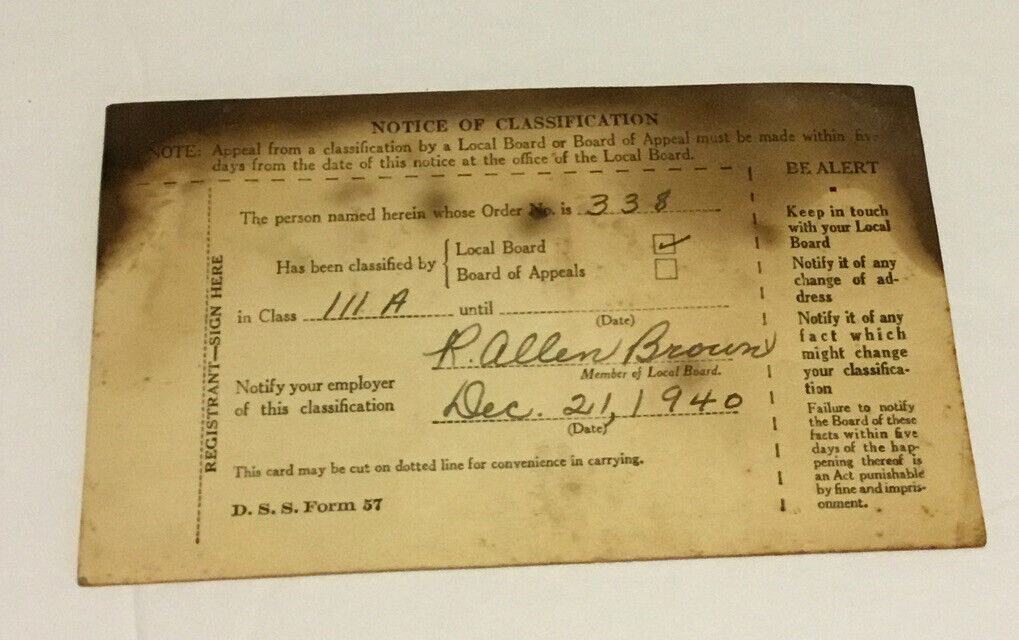 NOTICE OF CLASSIFICATION
NOTE: Appeal from a classification by a Local Board or Board of Appeal must be made within five
days from the date of this notice at the office of the Local Board.
REGISTRANT—SIGN HERE
The person named herein whose Order No. is 338
Has been classified by { Local Board
Board of Appeals
in Class III A until
(Date)
R. Allen Brown
Member of Local Board.
Notify your employer
of this classification
Dec. 21, 1940
(Date)
This card may be cut on dotted line for convenience in carrying.
D. S. S. Form 57
BE ALERT
Keep in touch
with your Local
Board
Notify it of any
change of ad-
dress
Notify it of any
fact which
might change
your classifica-
tion
Failure to notify
the Board of these
facts within five
days of the hap-
pening thereof is
an Act punishable
by fine and impris-
onment.